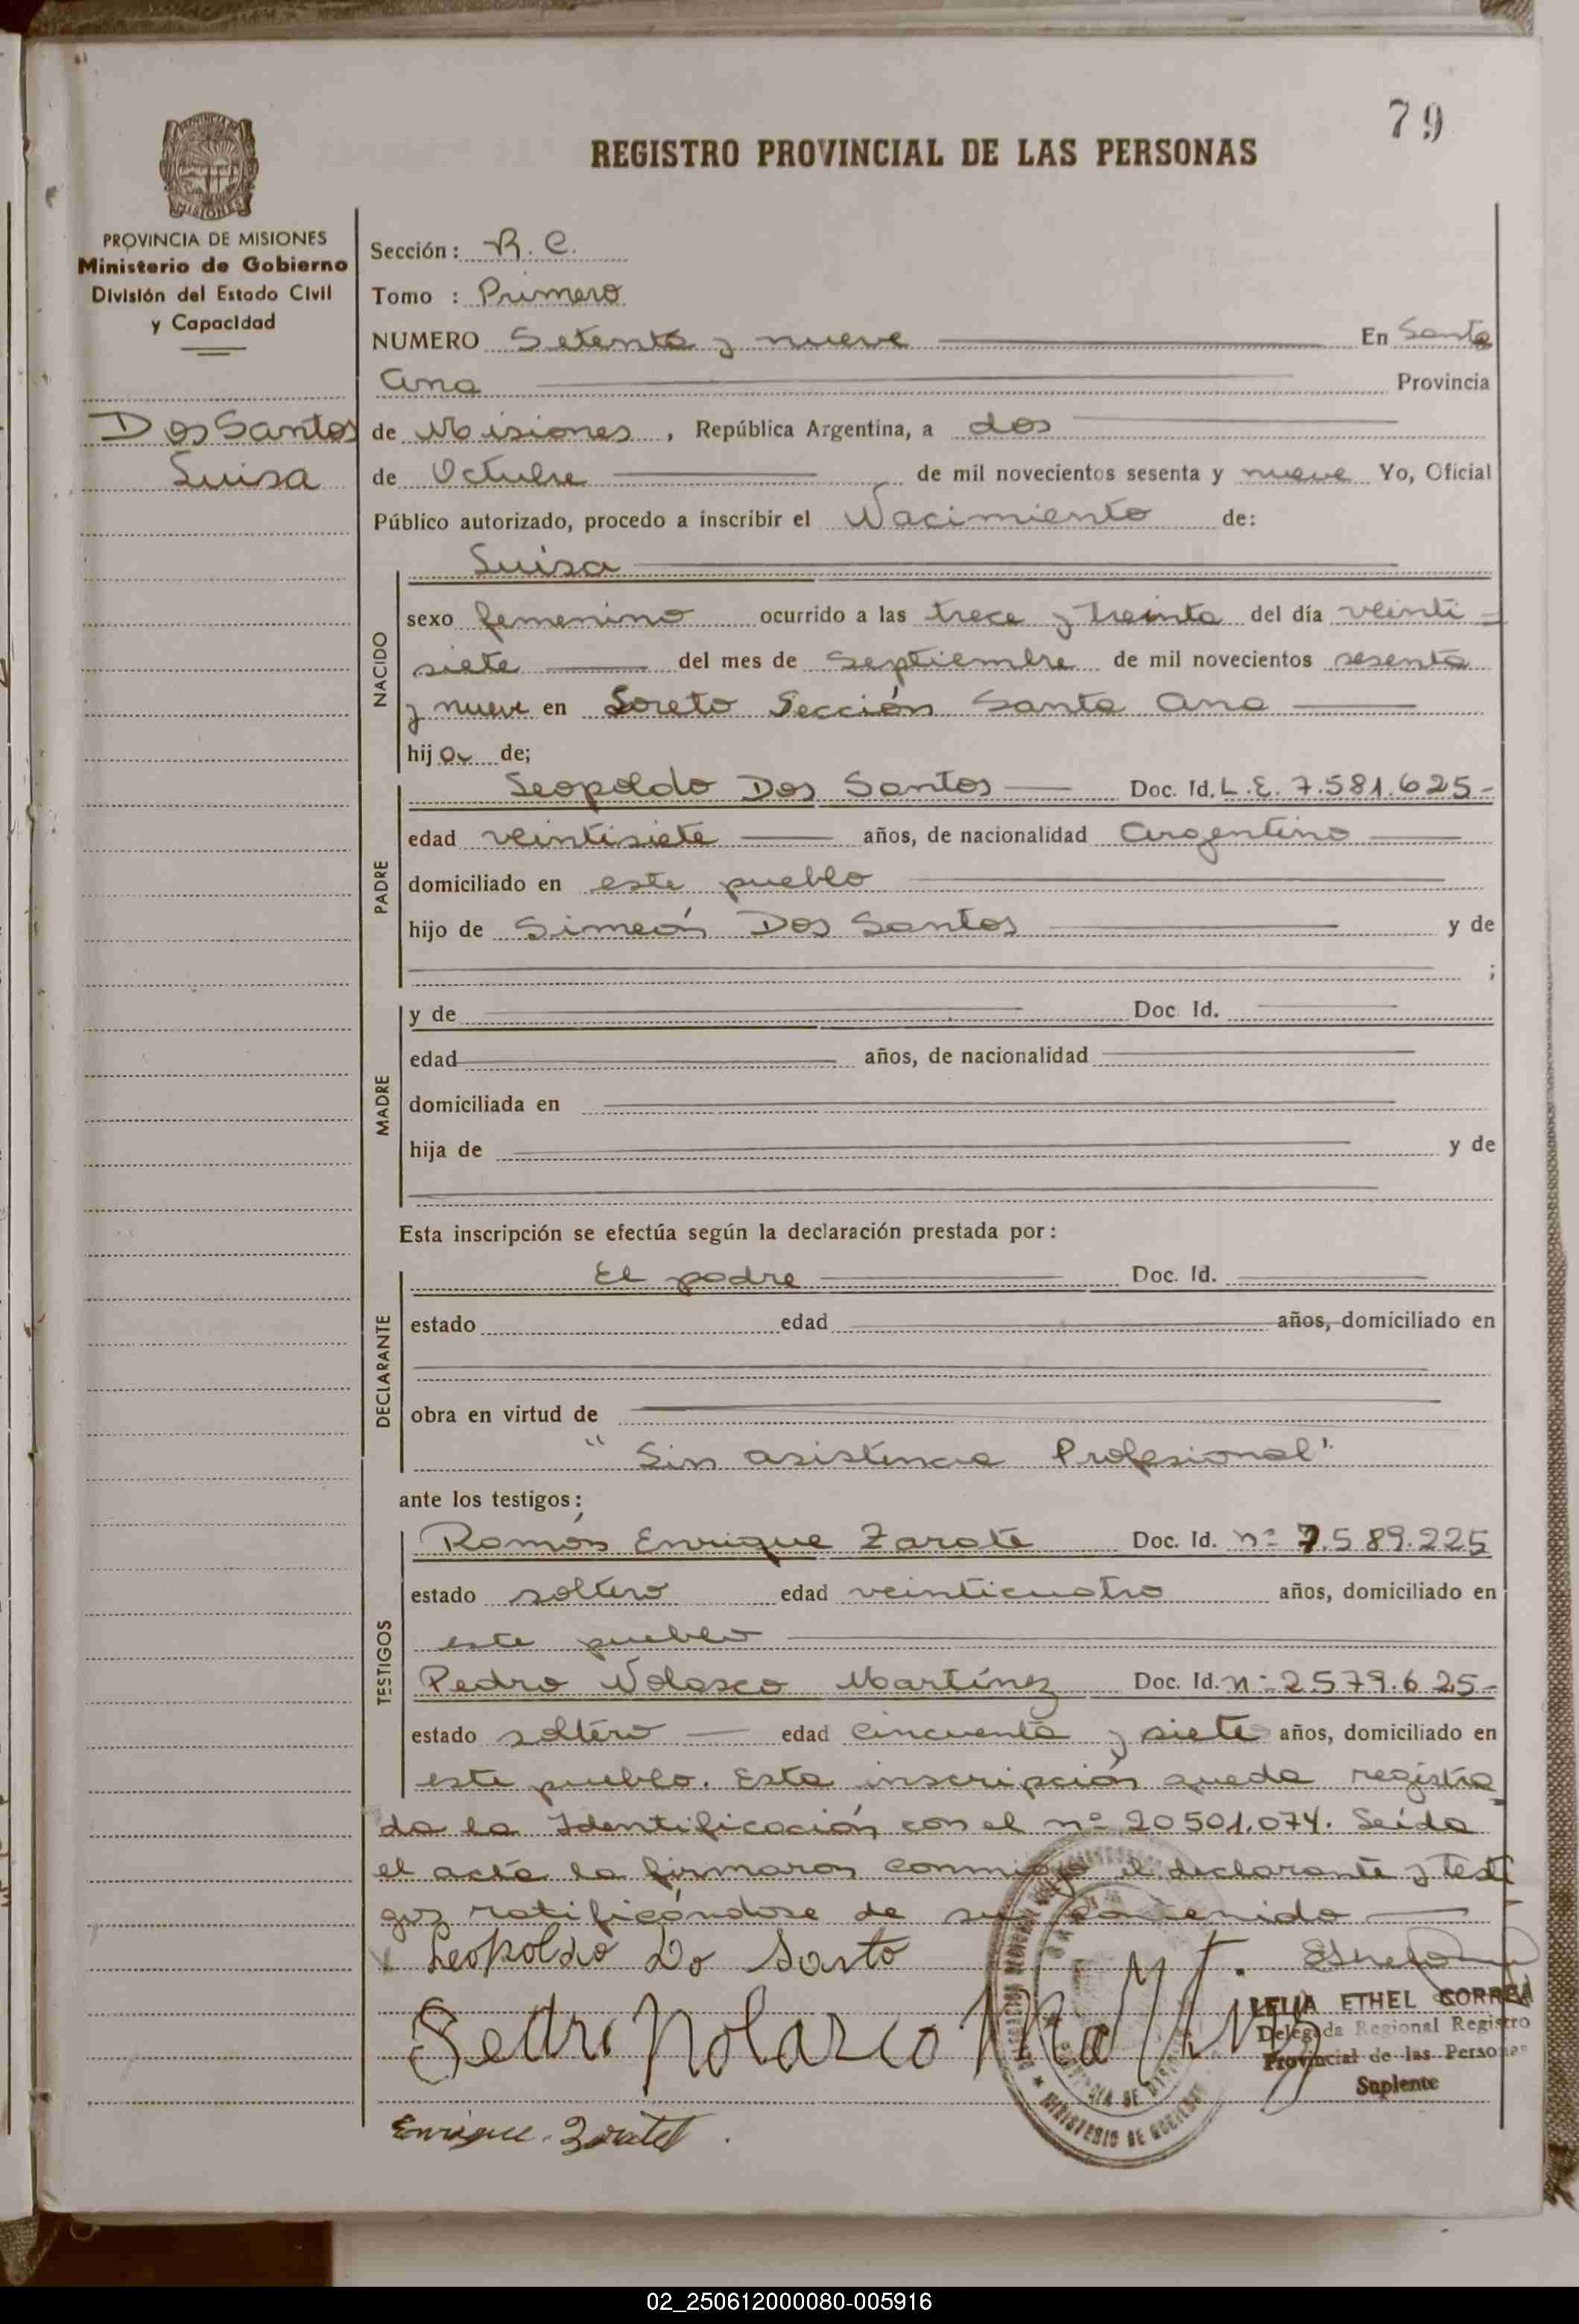 79
REGISTRO PROVINCIAL DE LAS PERSONAS
PROVINCIA DE MISIONES
Ministerio de Gobierno
División del Estado Civil
y Capacidad
Dos Santos
Luisa
Sección: R. C.
Tomo : Primero
NUMERO Setenta y nueve En Santa
Ana Provincia
de Misiones, República Argentina, a dos
de Octubre de mil novecientos sesenta y nueve Yo, Oficial
Público autorizado, procedo a inscribir el Nacimiento de:
NACIDO
Luisa
sexo femenino ocurrido a las trece y treinta del día veinti
siete del mes de Septiembre de mil novecientos sesenta
y nueve en Loreto Sección Santa Ana
hija de;
PADRE
Leopoldo Dos Santos Doc. Id. L.E. 7.581.625-
edad veintisiete años, de nacionalidad Argentino
domiciliado en este pueblo
hijo de Simeón Dos Santos y de
;
MADRE
y de Doc. Id.
edad años, de nacionalidad
domiciliada en
hija de y de
Esta inscripción se efectúa según la declaración prestada por:
DECLARANTE
El padre Doc. Id.
estado edad años, domiciliado en
obra en virtud de
"Sin asistencia Profesional"
ante los testigos:
TESTIGOS
Ramón Enrique Zarate Doc. Id. nº 7.589.225
estado soltero edad veinticuatro años, domiciliado en
este pueblo
Pedro Nolasco Martínez Doc. Id. nº 2579.625-
estado soltero edad cincuenta y siete años, domiciliado en
este pueblo. Esta inscripción queda registra
da la Identificación con el nº 20501.074. Leída
el acta la firmaron conmigo el declarante y testi
gos ratificándose de su contenido
Leopoldo Do Santo
Pedro Nolasco Martinez
LELIA ETHEL CORREA
Delegada Regional Registro
Provincial de las Personas
Suplente
MINISTERIO DE GOBIERNO
Enrique Zarate
02_250612000080-005916